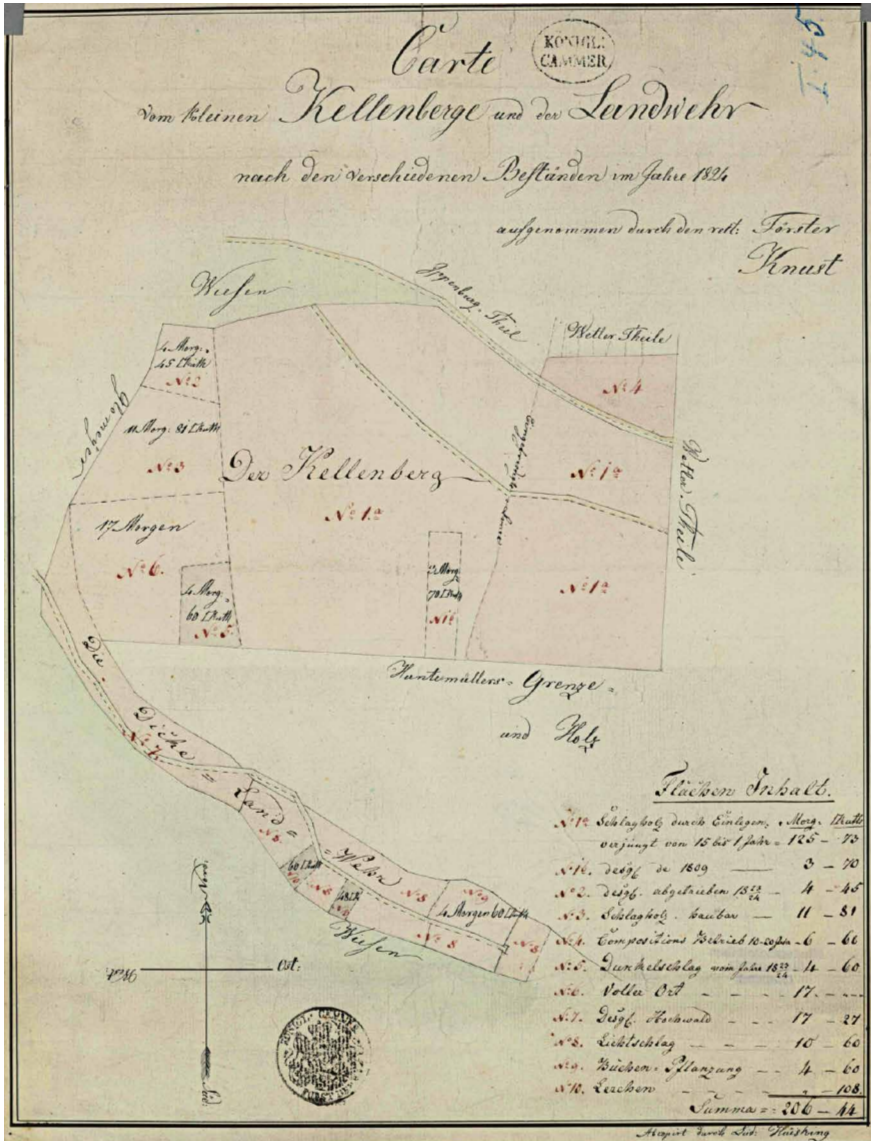 Carte
KÖNIGL:
CAMMER
vom kleinen Kellenberge und der Landwehr
nach den verschiedenen Beständen im Jahre 1824
aufgenommen durch den reit: Förster
Knust
Wiesen
Ippenburg. Theil
Wetter Theile
4 Morg:
45 □Ruth
N: 2
N: 4
11 Morg: 81 □Ruth
N: 3
Der Kellenberg
N: 1a
N: 1a
Wetter. Theile
17 Morgen
N: 6.
4 Morg.
60 □Ruth
N: 5
3 Morg
70 □Ruth
N: 1b
N: 1a
Huntemüllers Grenze
und Holz
Die
Dicke
N: 7.
Land
Wehr
N: 8
60 □Ruth
48 □R
N: 8
N: 9
4 Morgen 60 □Ruth
N: 8
N: 8
Wiesen
West
Ost:
Süd:
Flächen Inhalt.
Morg. □Ruth
N: 1a Schlagholz durch Einlegen,
verjüngt von 15 bis 1 Jahr = 125 - 73
N: 1b. desgl. de 1809 3 - 70
N: 2. desgl. abgetrieben 1823/24 - 4 - 45
N: 3. Schlagholz. haubar 11 - 81
N: 4. Compositions Betrieb 10-20 - 6 - 66
N: 5. Dunkelschlag vom Jahre 1823/24 - 4 - 60
N: 6. Voller Ort - - - 17. - ...
N: 7. Desgl. Hochwald - - - 17 - 27
N: 8. Lichtschlag - - - 10 - 60
N: 9. Buchen. Pflanzung - - 4 - 60
N: 10. Lerchen - - - 108
Summa = 206 - 44